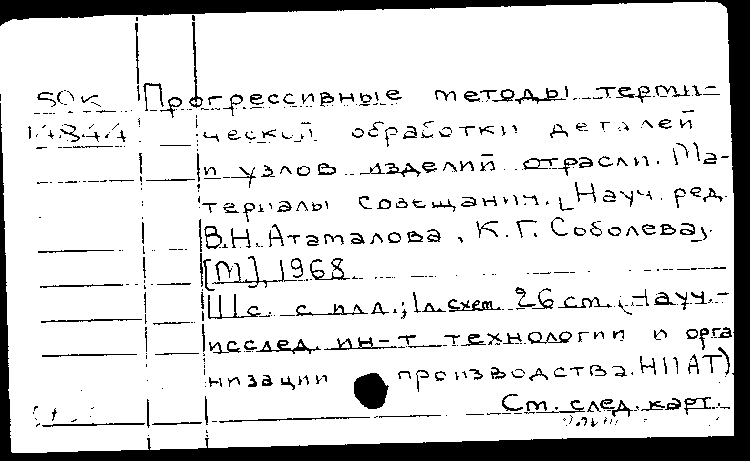 SOK Прогрессивные методы терми-
14844 ческой обработки деталей
и узлов изделий отрасли. Ма-
териалы совещания. [Науч. ред.
В.Н. Атамалова, К.Г. Соболева].
[М.], 1968
111с. с илл.; 1л. схем. 26 cm. (Науч.-
исслед. ин-т технологии и орга
низации производства. НИАТ)
См. след. карт.